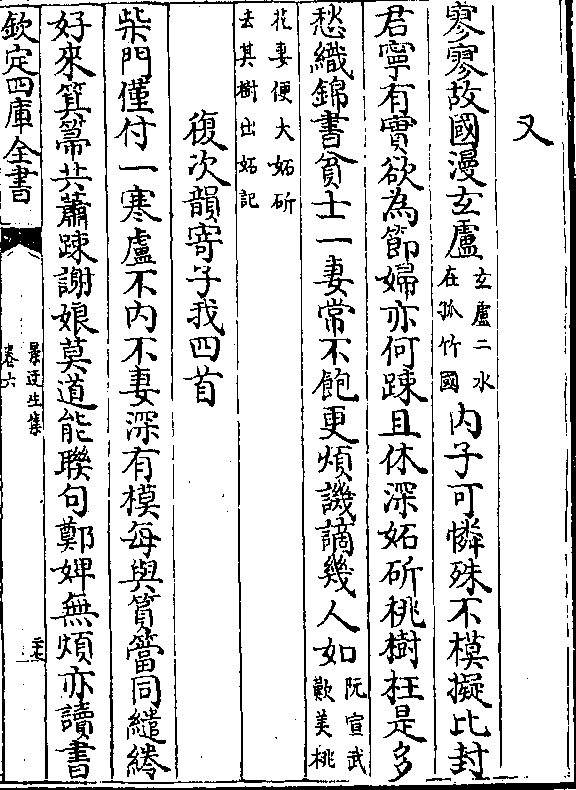 又
寥寥故國漫玄盧玄盧二水在孤竹國內子可憐殊不模擬比封
君寧有實欲為節婦亦何踈且休深妬斫桃樹枉是多
愁織錦書貧士一妻常不飽更煩譏謫幾人如阮宣武歎美桃
花妻便大妬斫去其樹出妬記
復次韻寄子我四首
柴門僅付一寒盧不內不妻深有模每與篔簹同繾綣
好來箕箒共蕭踈謝娘莫道能聯句鄭婢無煩亦讀書
欽定四庫全書
景迂生集
卷六